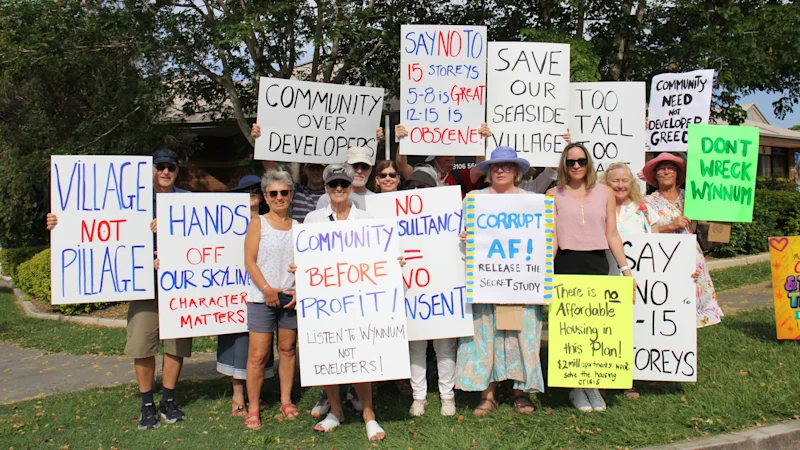 SAY NO TO
15 STOREYS
5-8 is GREAT
12-15 is
OBSCENE
SAVE
OUR
SEASIDE
VILLAGE
COMMUNITY
OVER
DEVELOPERS
TOO
TALL
TOO
COMMUNITY
NEED
NOT
DEVELOPER
GREED
DON'T
WRECK
WYNNUM
VILLAGE
NOT
PILLAGE
HANDS
OFF
OUR SKYLINE
CHARACTER
MATTERS
COMMUNITY
BEFORE
PROFIT!
LISTEN TO WYNNUM
NOT
DEVELOPERS!
NO
SULTANCY
=
NO
NSENT
CORRUPT
AF!
RELEASE THE
SECRET STUDY
There is no
Affordable
Housing in
this Plan!
$2 mill apartments wont
solve the housing
crisis
SAY
NO TO
-15
STOREYS